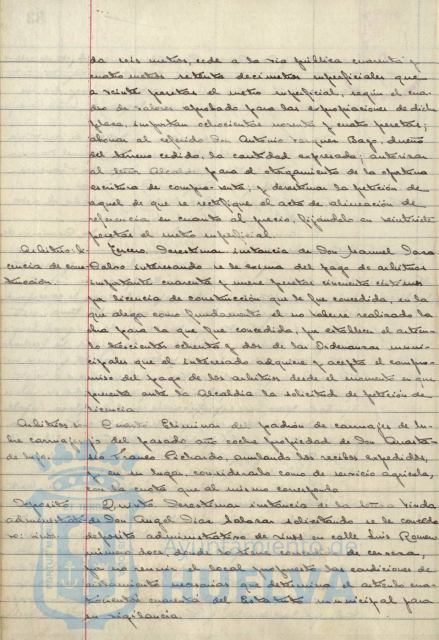 da seis metros, cede a la vía pública cuarenta y
cuatro metros setenta decímetros superficiales que
a veinte pesetas el metro superficial, según el cua-
dro de valores aprobado para las expropiaciones de dicha
plaza, importan ochocientas noventa y cuatro pesetas;
abonar al referido Don Antonio Vazquez Bago, dueño
del terreno cedido, la cantidad expresada; autorizar
al Señor Alcalde para el otorgamiento de la oportuna
escritura de compra-venta; y desestimar la petición de
aquel de que se rectifique el acta de alineación de
referencia en cuanto al precio, fijándolo en veintisiete
pesetas el metro superficial
Arbitrio: li Tercero. Desestimar instancia de Don Manuel
cencia de cons interesando se le exima del pago de arbitrios
trucción. importante cuarenta y nueve pesetas cincuenta céntimos
por licencia de construcción que le fue concedida, en la
que alega como fundamento el no haberse realizado la
obra para la que fue concedida, pues establece el artícu-
lo trescientos ochenta y dos de las Ordenanzas muni-
cipales que el interesado adquiere y acepta el compro-
miso del pago de los arbitrios desde el momento en que
presenta ante la Alcaldía la solicitud de petición de
licencia
Arbitrios so Cuarto Eliminar del padrón de carruajes de lu-
bre carruajes jo del pasado año coche propiedad de Don Anasta-
de lujo. sio Franco Pichardo, anulando los recibos expedidos,
y, en su lugar, considerarlo como de servicio agrícola,
con la cuota que al mismo corresponda
Depósito Quinto Desestimar instancia de la Viuda
administrati de Don Angel Dias solicitando se le conceda
vo: vinos depósito administrativo de vinos en calle Luis
número doce
por no reunir el local propuesto las condiciones de
aislamiento necesarias que determina el artículo cua-
trocientos cuarenta del Estatuto municipal para
su vigilancia.
Ayuntamiento de
HUELVA